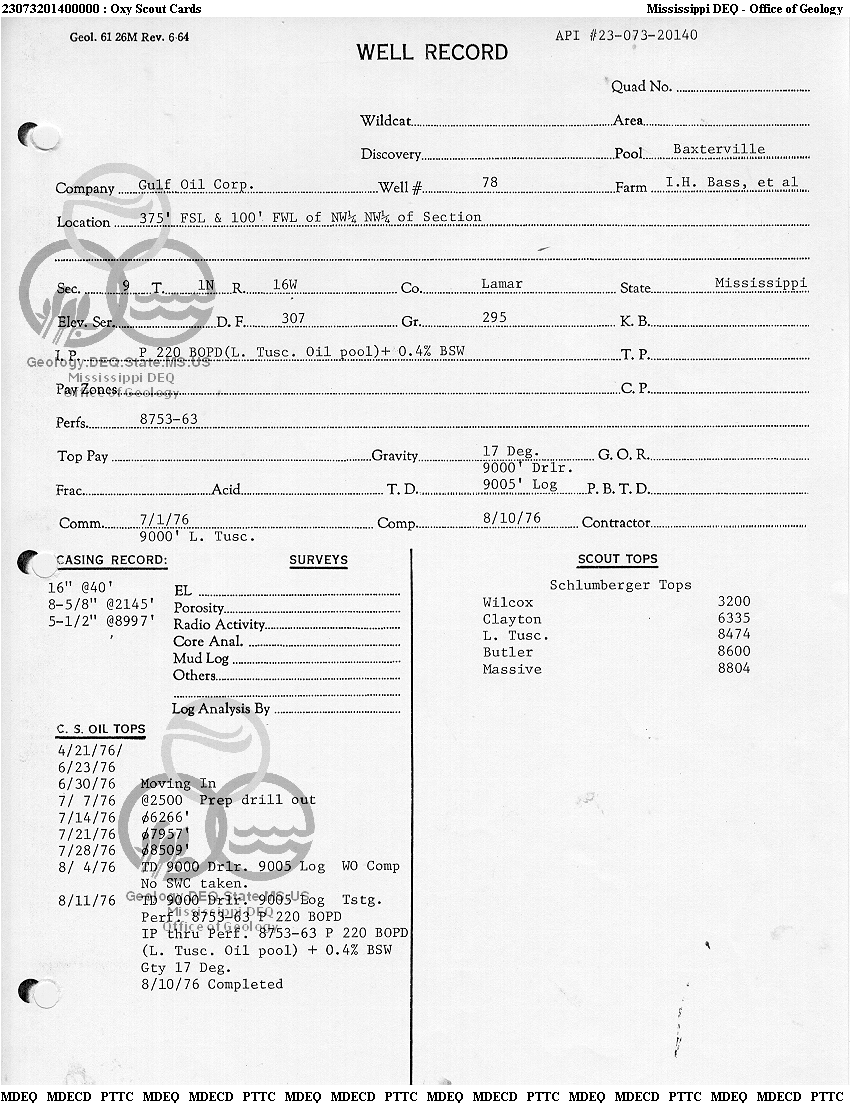 23073201400000 : Oxy Scout Cards Mississippi DEQ - Office of Geology
Geol. 61 26M Rev. 6-64 API #23-073-20140
WELL RECORD
Quad No.
Wildcat Area
Discovery Pool Baxterville
Company Gulf Oil Corp. Well # 78 Farm I.H. Bass, et al
Location 375' FSL & 100' FWL of NW¼ NW¼ of Section
Sec. 9 T. 1N R. 16W Co. Lamar State Mississippi
Elev. Ser. D. F. 307 Gr. 295 K. B.
I. P. P 220 BOPD(L. Tusc. Oil pool)+ 0.4% BSW T. P.
Geology.DEQ.State.MS.US
Mississippi DEQ
Office of Geology
Pay Zones C. P.
Perfs. 8753-63
Top Pay Gravity 17 Deg. G. O. R.
9000' Drlr.
Frac. Acid T. D. 9005' Log P. B. T. D.
Comm. 7/1/76 Comp. 8/10/76 Contractor
9000' L. Tusc.
CASING RECORD: SURVEYS SCOUT TOPS
16" @40'
8-5/8" @2145'
5-1/2" @8997'
EL
Porosity
Radio Activity
Core Anal.
Mud Log
Others
Log Analysis By
Schlumberger Tops
Wilcox 3200
Clayton 6335
L. Tusc. 8474
Butler 8600
Massive 8804
C. S. OIL TOPS
4/21/76/
6/23/76
6/30/76 Moving In
7/ 7/76 @2500 Prep drill out
7/14/76 ∅6266'
7/21/76 ∅7957'
7/28/76 ∅8509'
8/ 4/76 TD 9000 Drlr. 9005 Log WO Comp
No SWC taken.
8/11/76 TD 9000 Drlr. 9005 Log Tstg.
Perf. 8753-63 P 220 BOPD
IP thru Perf. 8753-63 P 220 BOPD
(L. Tusc. Oil pool) + 0.4% BSW
Gty 17 Deg.
8/10/76 Completed
Geology.DEQ.State.MS.US
Mississippi DEQ
Office of Geology
MDEQ MDECD PTTC MDEQ MDECD PTTC MDEQ MDECD PTTC MDEQ MDECD PTTC MDEQ MDECD PTTC MDEQ MDECD PTTC